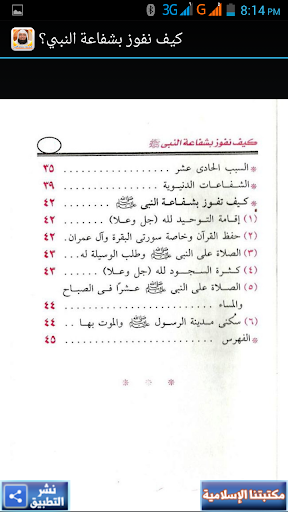 3G G 8:14 PM
كيف نفوز بشفاعة النبي؟
كيف نفوز بشفاعة النبى ﷺ
* السبب الحادى عشر .................. ٣٥
* الشفاعات الدنيوية .................. ٣٩
* كيف تفوز بشفاعة النبى ﷺ .................. ٤٢
(١) إقامة التوحيد لله (جل وعلا) .................. ٤٢
(٢) حفظ القرآن وخاصة سورتى البقرة وآل عمران. ٤٢
(٣) الصلاة على النبى ﷺ وطلب الوسيلة له .. ٤٣
(٤) كثرة السجود لله (جل وعلا) .................. ٤٣
(٥) الصلاة على النبى ﷺ عشرًا فى الصباح
والمساء .................. ٤٤
(٦) سكنى مدينة الرسول ﷺ والموت بها .. ٤٤
* الفهرس .................. ٤٥
* * *
نشر
التطبيق
مكتبتنا الإسلامية